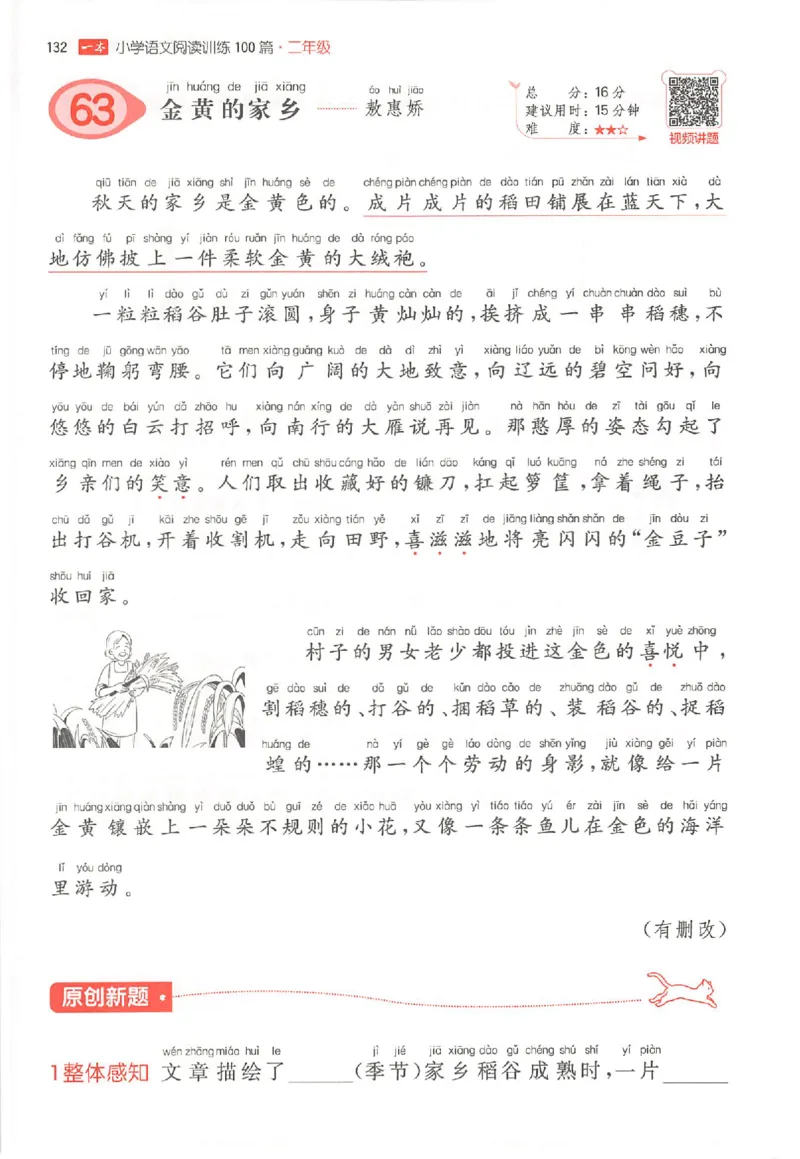 132 一本 小学语文阅读训练100篇·二年级
jīn huáng de jiā xiāng áo huì jiāo
63 金黄的家乡 ———— 敖惠娇
总 分：16分
建议用时：15分钟
难 度：★★☆
视频讲题
qiū tiān de jiā xiāng shì jīn huáng sè de chéng piàn chéng piàn de dào tián pū zhǎn zài lán tiān xià dà
秋天的家乡是金黄色的。成片成片的稻田铺展在蓝天下，大
dì fǎng fú pī shàng yí jiàn róu ruǎn jīn huáng de dà róng páo
地仿佛披上一件柔软金黄的大绒袍。
yí lì lì dào gǔ dù zi gǔn yuán shēn zi huáng càn càn de āi jǐ chéng yí chuàn chuàn dào suì bù
一粒粒稻谷肚子滚圆，身子黄灿灿的，挨挤成一串串稻穗，不
tíng de jū gōng wān yāo tā men xiàng guǎng kuò de dà dì zhì yì xiàng liáo yuǎn de bì kōng wèn hǎo xiàng
停地鞠躬弯腰。它们向广阔的大地致意，向辽远的碧空问好，向
yōu yōu de bái yún dǎ zhāo hu xiàng nán xíng de dà yàn shuō zài jiàn nà hān hòu de zī tài gōu qǐ le
悠悠的白云打招呼，向南行的大雁说再见。那憨厚的姿态勾起了
xiāng qīn men de xiào yì rén men qǔ chū shōu cáng hǎo de lián dāo káng qǐ luó kuāng ná zhe shéng zi tái
乡亲们的笑意。人们取出收藏好的镰刀，扛起箩筐，拿着绳子，抬
chū dǎ gǔ jī kāi zhe shōu gē jī zǒu xiàng tián yě xǐ zī zī de jiāng liàng shǎn shǎn de jīn dòu zi
出打谷机，开着收割机，走向田野，喜滋滋地将亮闪闪的“金豆子”
shōu huí jiā
收回家。
cūn zi de nán nǚ lǎo shào dōu tóu jìn zhè jīn sè de xǐ yuè zhōng
村子的男女老少都投进这金色的喜悦中，
gē dào suì de dǎ gǔ de kǔn dào cǎo de zhuāng dào gǔ de zhuō dào
割稻穗的、打谷的、捆稻草的、装稻谷的、捉稻
huáng de nà yí gè gè láo dòng de shēn yǐng jiù xiàng gěi yí piàn
蝗的……那一个个劳动的身影，就像给一片
jīn huáng xiāng qiàn shàng yì duǒ duǒ bù guī zé de xiǎo huā yòu xiàng yì tiáo tiáo yú ér zài jīn sè de hǎi yáng
金黄镶嵌上一朵朵不规则的小花，又像一条条鱼儿在金色的海洋
lǐ yóu dòng
里游动。
（有删改）
原创新题
wén zhāng miáo huì le jì jié jiā xiāng dào gǔ chéng shú shí yí piàn
1 整体感知 文章描绘了______（季节）家乡稻谷成熟时，一片______